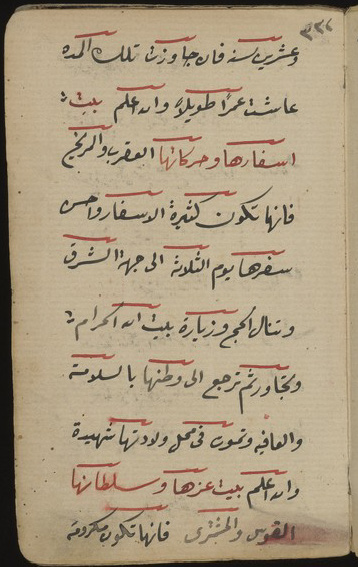 ٣٣٧
وعشرين سنة فان جاوزت تلك المده
عاشت عمرًا طويلاً والله اعلم بيت
اسفارها وحركاتها العقرب والمريخ
فانها تكون كثيرة الاسفار واحسن
سفرها يوم الثلاثة الى جهة الشرق
وتنال الحج وزيارة بيت الله الحرام
وتجاور ثم ترجع الى وطنها بالسلامة
والعافيه وتموت فى محل ولادتها شهيدة
والله اعلم بيت عزها وسلطانها
القوس والمشترى فانها تكون مكرومة